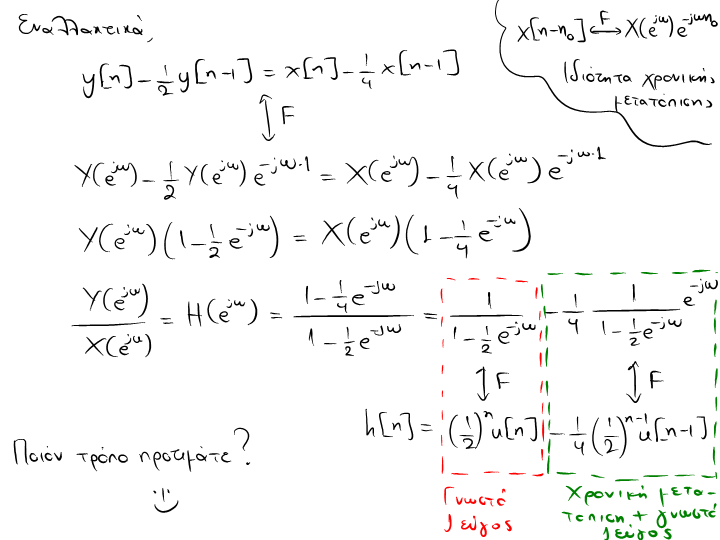 Εναλλακτικά,
x[n-n₀] ⟷F X(e^{jω})e^{-jωn₀}
Ιδιότητα χρονικής
μετατόπισης
y[n] - 1/2 y[n-1] = x[n] - 1/4 x[n-1]
↕ F
Y(e^{jω}) - 1/2 Y(e^{jω}) e^{-jω·1} = X(e^{jω}) - 1/4 X(e^{jω}) e^{-jω·1}
Y(e^{jω}) (1 - 1/2 e^{-jω}) = X(e^{jω}) (1 - 1/4 e^{-jω})
Y(e^{jω})/X(e^{jω}) = H(e^{jω}) = (1 - 1/4 e^{-jω})/(1 - 1/2 e^{-jω}) = 1/(1 - 1/2 e^{-jω}) - 1/4 1/(1 - 1/2 e^{-jω}) e^{-jω}
↕ F ↕ F
h[n] = (1/2)^n u[n] - 1/4 (1/2)^{n-1} u[n-1]
Ποιόν τρόπο προτιμάτε?
Γνωστό
ζεύγος
Χρονική μετα-
τόπιση + γνωστό
ζεύγος